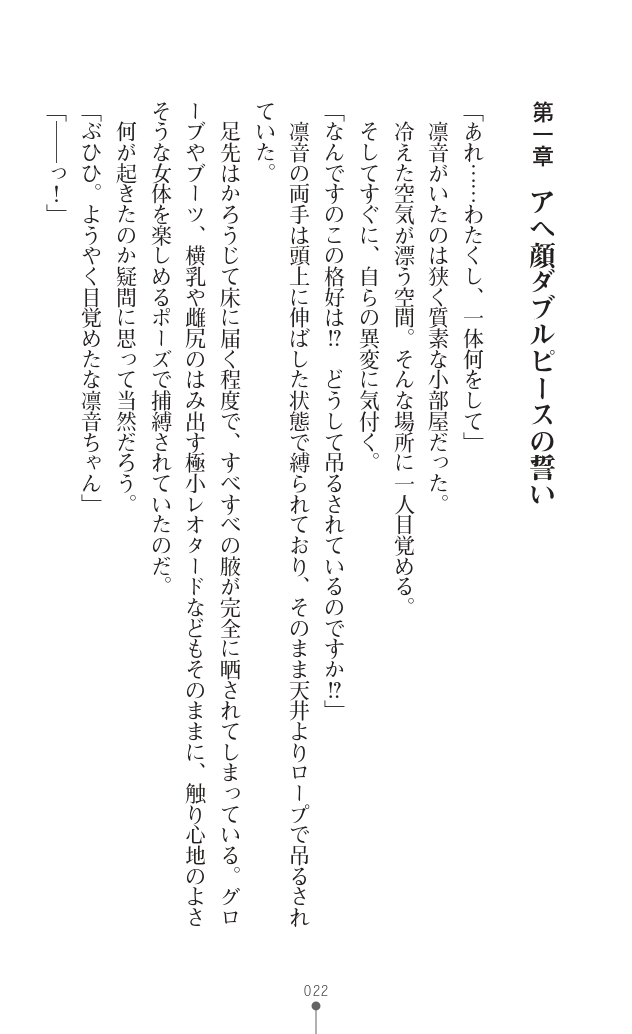 第一章　アヘ顔ダブルピースの誓い
「あれ……わたくし、一体何をして」
　凛音がいたのは狭く質素な小部屋だった。
　冷えた空気が漂う空間。そんな場所に一人目覚める。
　そしてすぐに、自らの異変に気付く。
「なんですのこの格好は!?　どうして吊るされているのですか!?」
　凛音の両手は頭上に伸ばした状態で縛られており、そのまま天井よりロープで吊るされ
ていた。
　足先はかろうじて床に届く程度で、すべすべの腋が完全に晒されてしまっている。グロ
ーブやブーツ、横乳や雌尻のはみ出す極小レオタードなどもそのままに、触り心地のよさ
そうな女体を楽しめるポーズで捕縛されていたのだ。
　何が起きたのか疑問に思って当然だろう。
「ぶひひ。ようやく目覚めたな凛音ちゃん」
「――っ！」
022